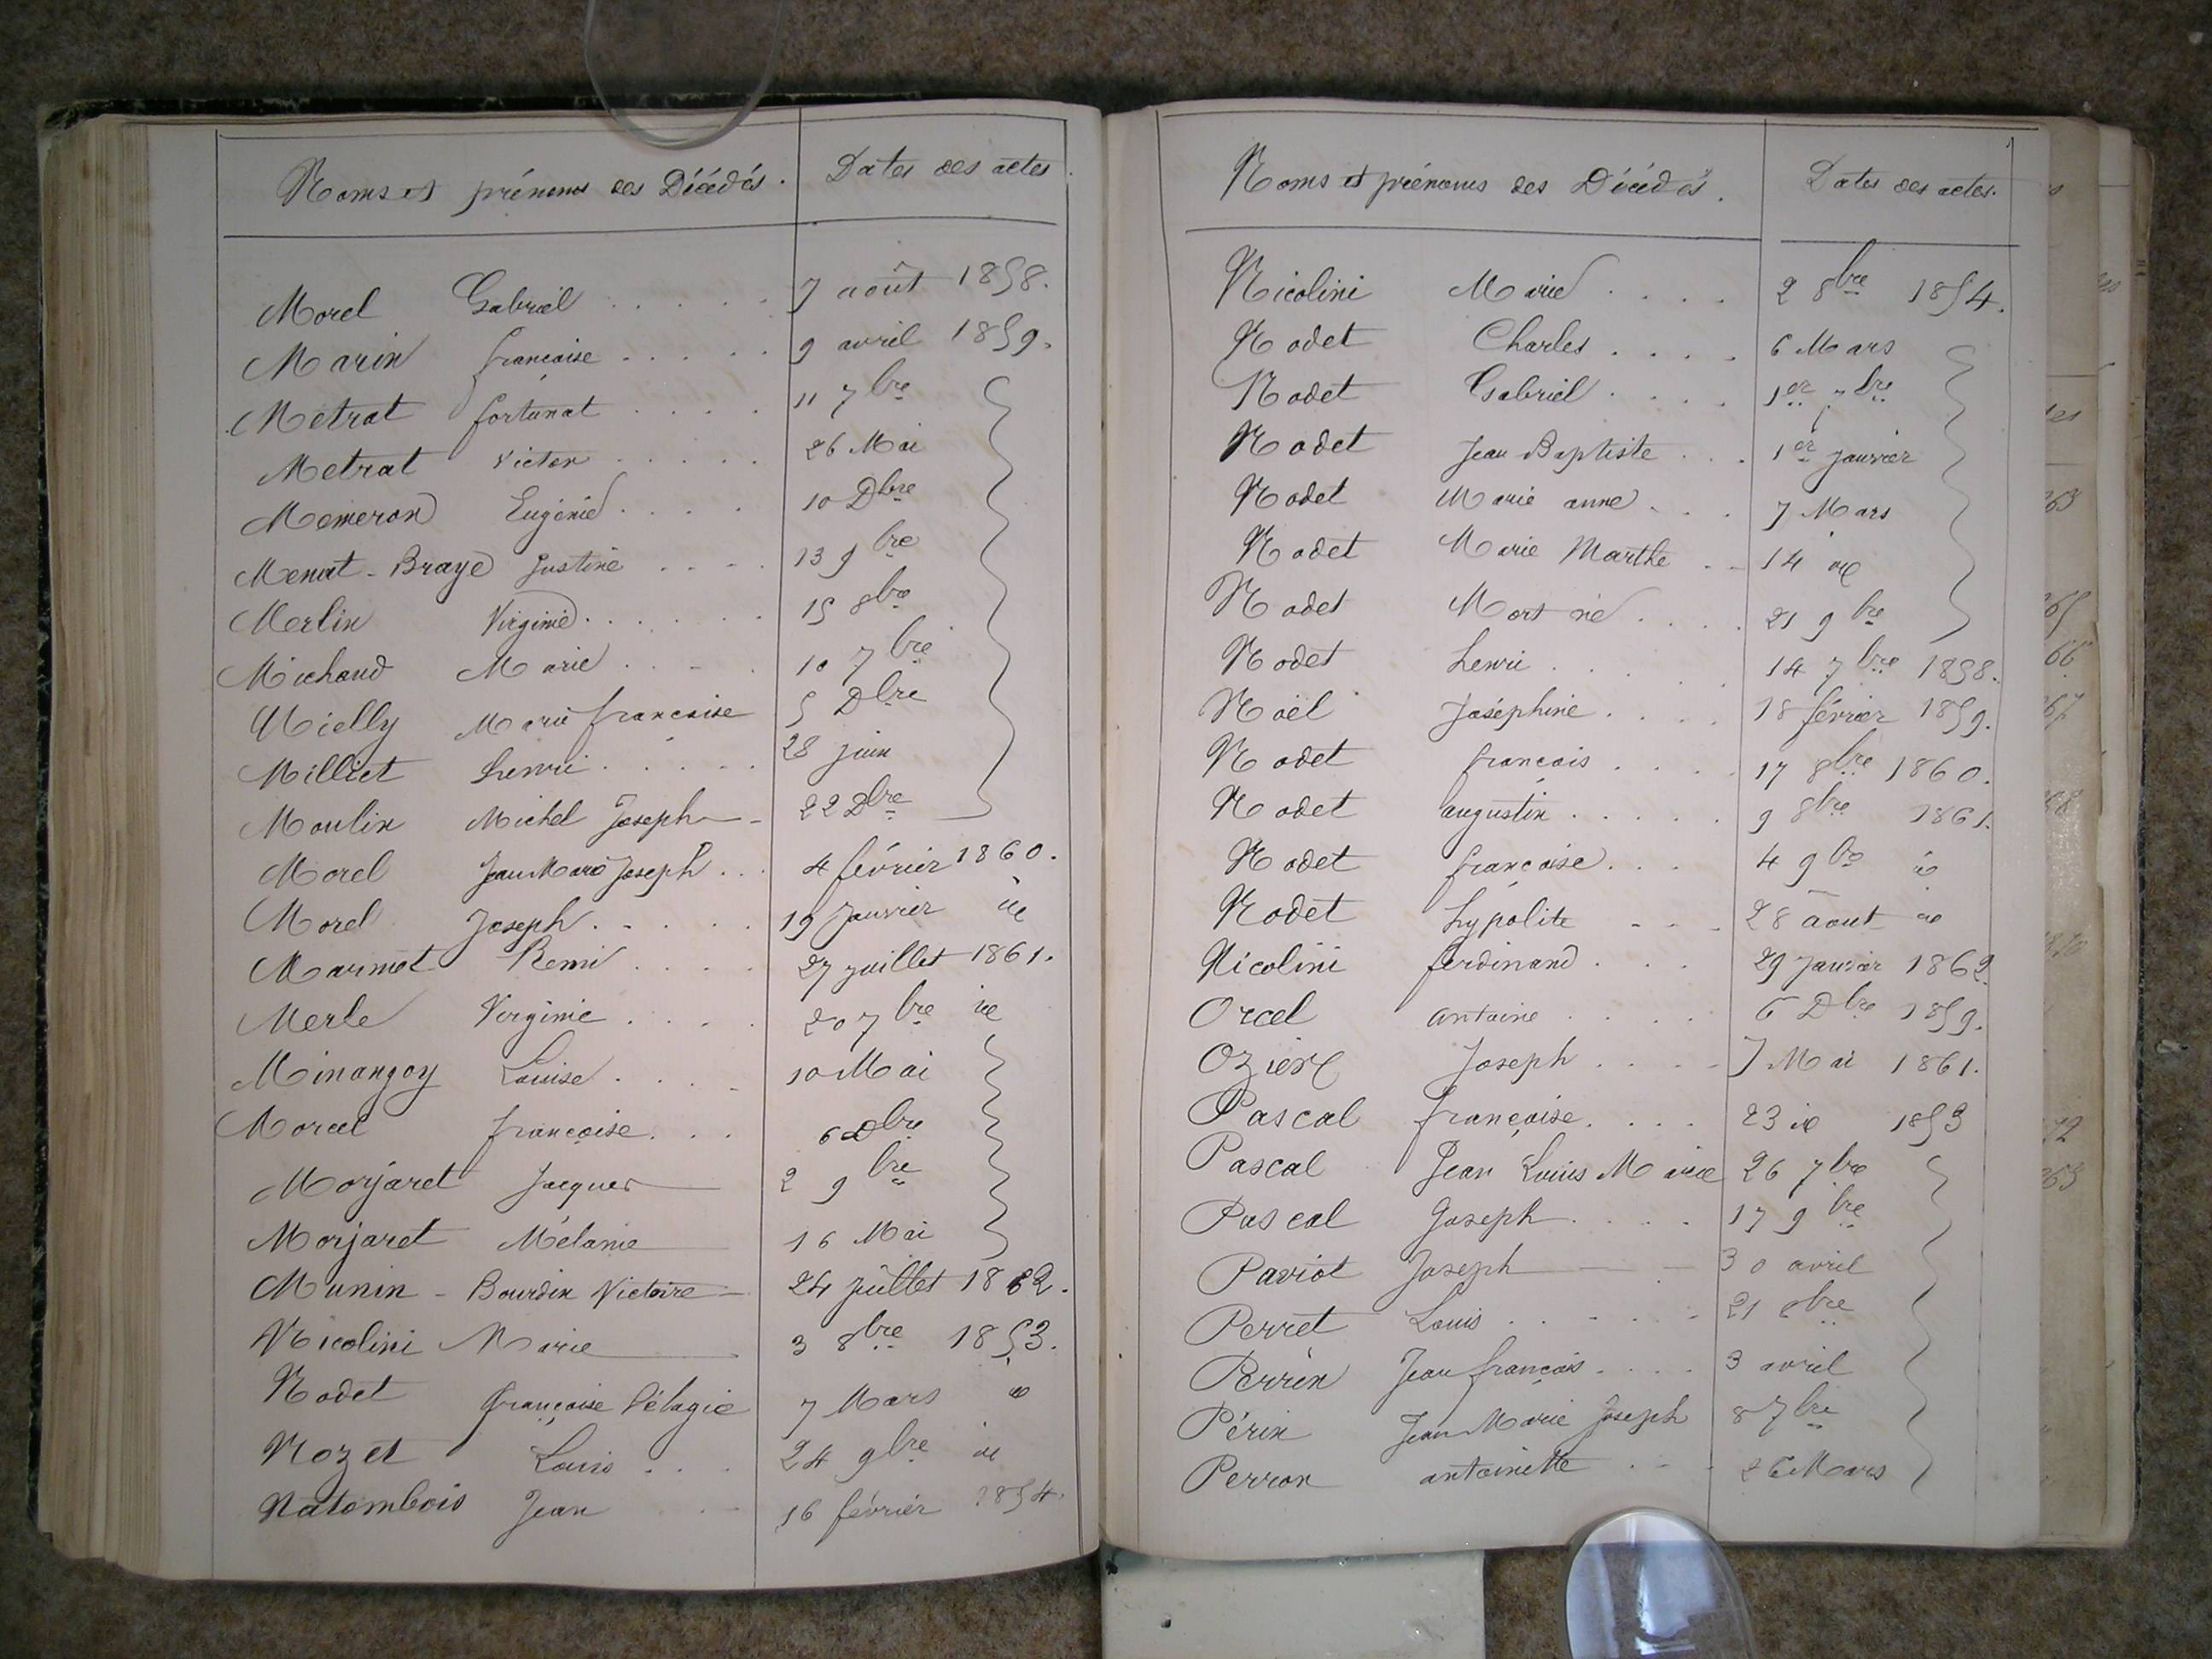 Noms et prénoms des Décédés. Dates des actes.
Morel Gabriel . . . . . 7 août 1858.
Marin françoise . . . . . 9 avril 1859.
Metrat fortunat . . . . 11 7bre
Metrat Victor . . . . . 26 Mai
Memeron Eugénie . . . . 10 Dbre
Menat-Braye Justine . . . . 13 9bre
Merlin Virginie . . . . . . 15 8bre
Michaud Marie . . . . 10 7bre
Mielly Marie françoise 5 Dbre
Milliet henri . . . . . 28 juin
Moulin Michel Joseph - 22 Dbre
Morel Jean Marie Joseph . . . 4 février 1860.
Morel Joseph . . . . . 19 Janvier id
Marmet Remi . . . . 27 juillet 1861.
Merle Virginie . . . . 20 7bre id
Minangoy Louise . . . . 10 Mai
Morcel françoise . . . 6 Dbre
Morjaret Jacques 2 9bre
Morjaret Mélanie 16 Mai
Munin - Bourdin Victoire - 24 juillet 1862.
Nicolini Marie 3 8bre 1853.
Nodet françoise Pélagie 7 Mars id
Nozet Louis . . . 24 9bre id
Natombois Jean 16 février 1854.
Noms et prénoms des Décédés. Dates des actes.
Nicolini Marie . . . . 2 8bre 1854.
Nodet Charles . . . . 6 Mars
Nodet Gabriel . . . . 1er 7bre
Nodet Jean Baptiste . . . 1er janvier
Nodet Marie anne . . . 7 Mars
Nodet Marie Marthe . . 14 id
Nodet Mort né . . . . 21 9bre
Nodet henri . . . . . 14 7bre 1858.
Noël Joséphine . . . . 18 février 1859.
Nodet françois . . . . 17 8bre 1860.
Nodet augustin . . . . . 9 8bre 1861.
Nodet françoise . . . 4 9bre id
Nodet hypolite - - - 28 aout id
Nicolini ferdinand . . . 29 Janvier 1862
Orcel antoine . . . . 6 Dbre 1859.
Ozier Joseph . . . . 7 Mai 1861.
Pascal françoise . . . . 23 id 1853
Pascal Jean Louis Marie 26 7bre
Pascal Joseph . . . . 17 9bre
Paviot Joseph - - 30 avril
Perret Louis . . . . . . 21 8bre
Perrin Jean françois . . . . 3 avril
Périn Jean Marie Joseph 8 7bre
Perron antoinette . - - 26 Mars